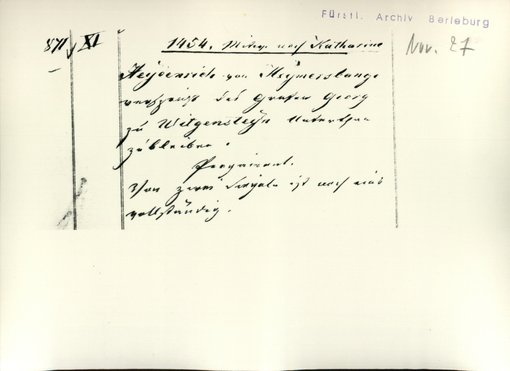 Fürstl. Archiv Berleburg
Nov. 27
871 XI
1454. Mittw. nach Katharine
Heydenrich von Heymershange
verspricht des Grafen Georg
zu Witgenstein Unterthan
zu bleiben.
Pergament.
Von zwei Siegeln ist noch eins
vollständig.